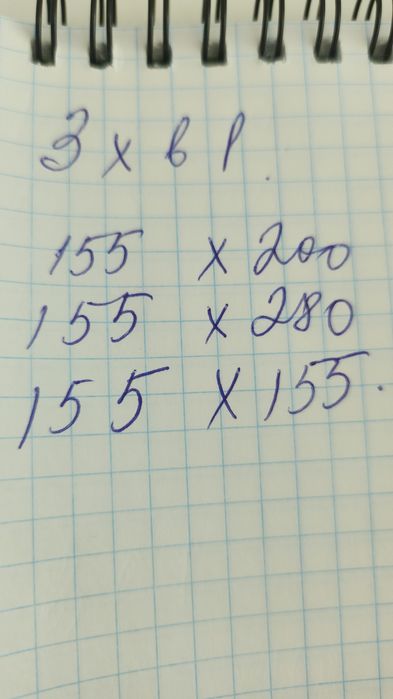 3 х в р.
155 х 200
155 х 280
155 х 155.